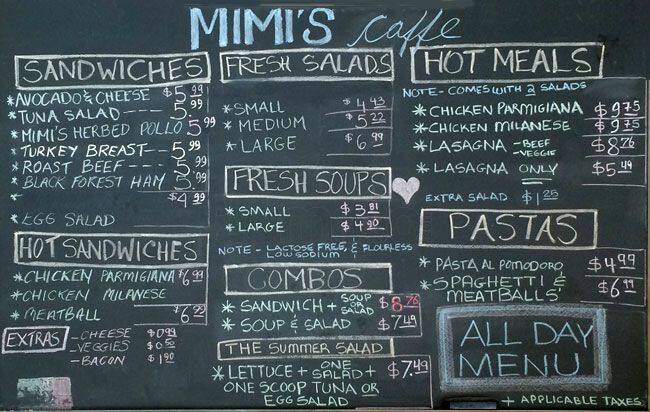 MIMI'S caffe
SANDWICHES
* AVOCADO & CHEESE $5.99
* TUNA SALAD ---- 5.99
* MIMI'S HERBED POLLO 5.99
* TURKEY BREAST --- 5.99
* ROAST BEEF ---- 5.99
* BLACK FOREST HAM 5.99
* $4.99
* EGG SALAD
HOT SANDWICHES
* CHICKEN PARMIGIANA $6.99
* CHICKEN MILANESE
* MEATBALL $6.22
EXTRAS
- CHEESE $0.99
- VEGGIES $0.50
- BACON $1.90
FRESH SALADS
* SMALL $4.43
* MEDIUM $5.22
* LARGE $6.99
FRESH SOUPS
* SMALL $3.81
* LARGE $4.90
NOTE - LACTOSE FREE, & FLOURLESS
LOW SODIUM
COMBOS
* SANDWICH + SOUP OR SALAD $8.76
* SOUP & SALAD $7.49
THE SUMMER SALAD
* LETTUCE + ONE SALAD + $7.49
ONE SCOOP TUNA OR
EGG SALAD
HOT MEALS
NOTE - COMES WITH 2 SALADS
* CHICKEN PARMIGIANA $9.75
* CHICKEN MILANESE $9.75
* LASAGNA - BEEF VEGGIE $8.76
* LASAGNA ONLY $5.49
EXTRA SALAD $1.25
PASTAS
* PASTA AL POMODORO $4.99
* SPAGHETTI &
MEATBALLS $6.99
ALL DAY
MENU
+ APPLICABLE TAXES